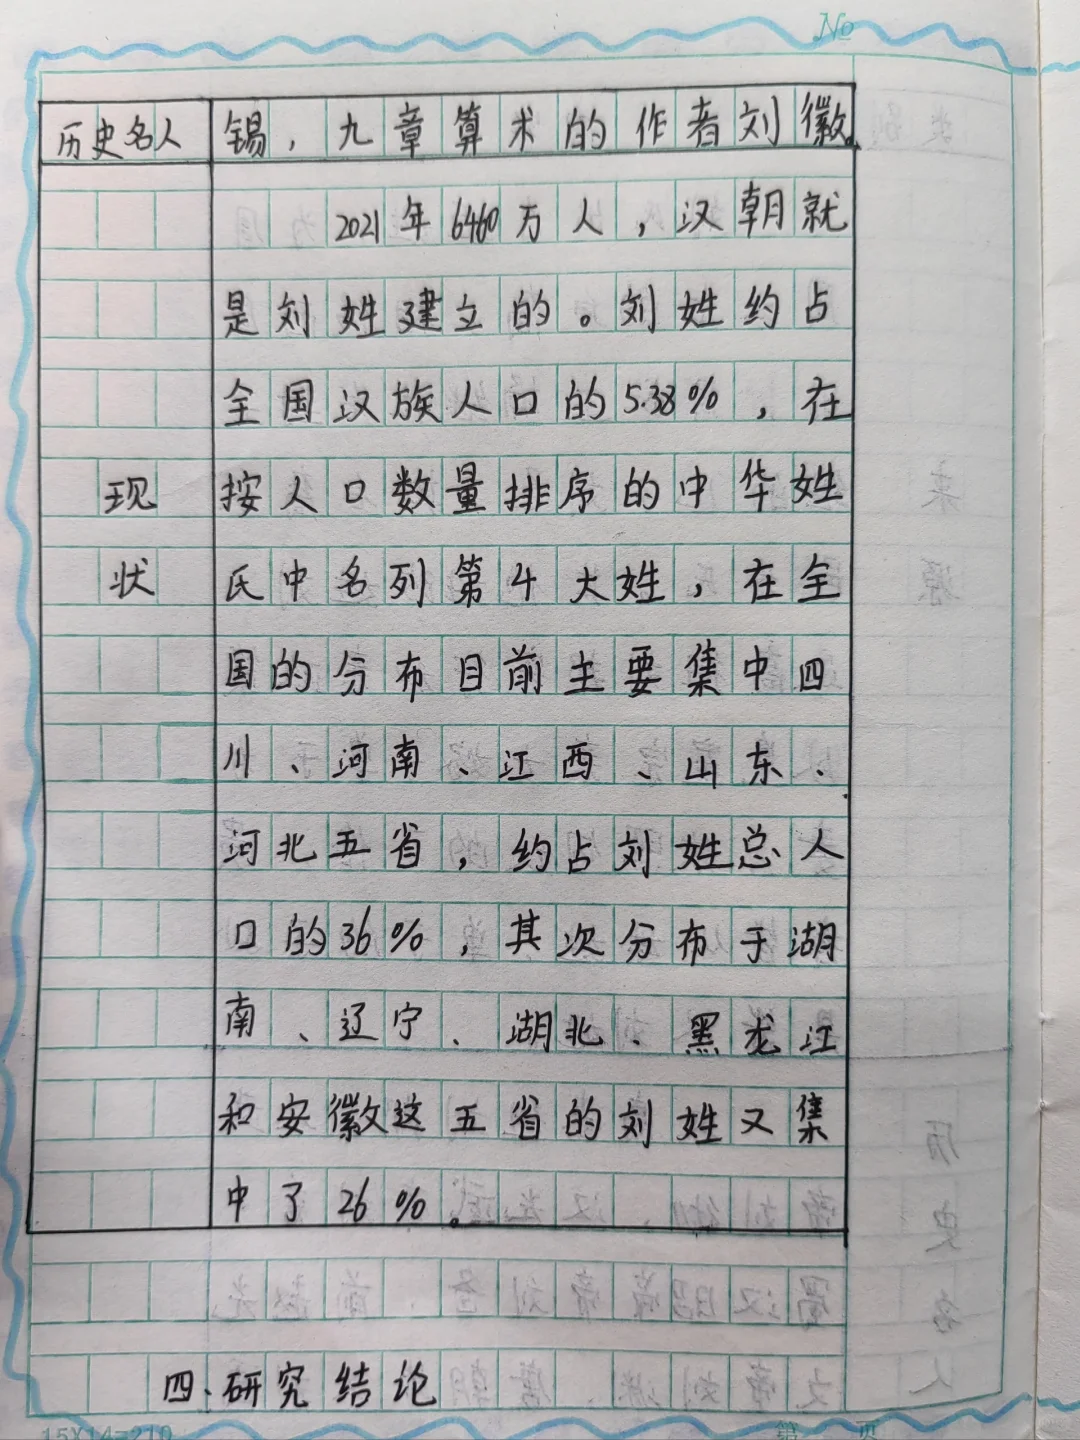 No
历史名人 锡，九章算术的作者刘徽。
2021年6460万人，汉朝就
是刘姓建立的。刘姓约占
全国汉族人口的5.38%，在
现 按人口数量排序的中华姓
状 氏中名列第4大姓，在全
国的分布目前主要集中四
川、河南、江西、山东、
河北五省，约占刘姓总人
口的36%，其次分布于湖
南、辽宁、湖北、黑龙江
和安徽这五省的刘姓又集
中了26%。
四、研究结论
15X14=210 第 页